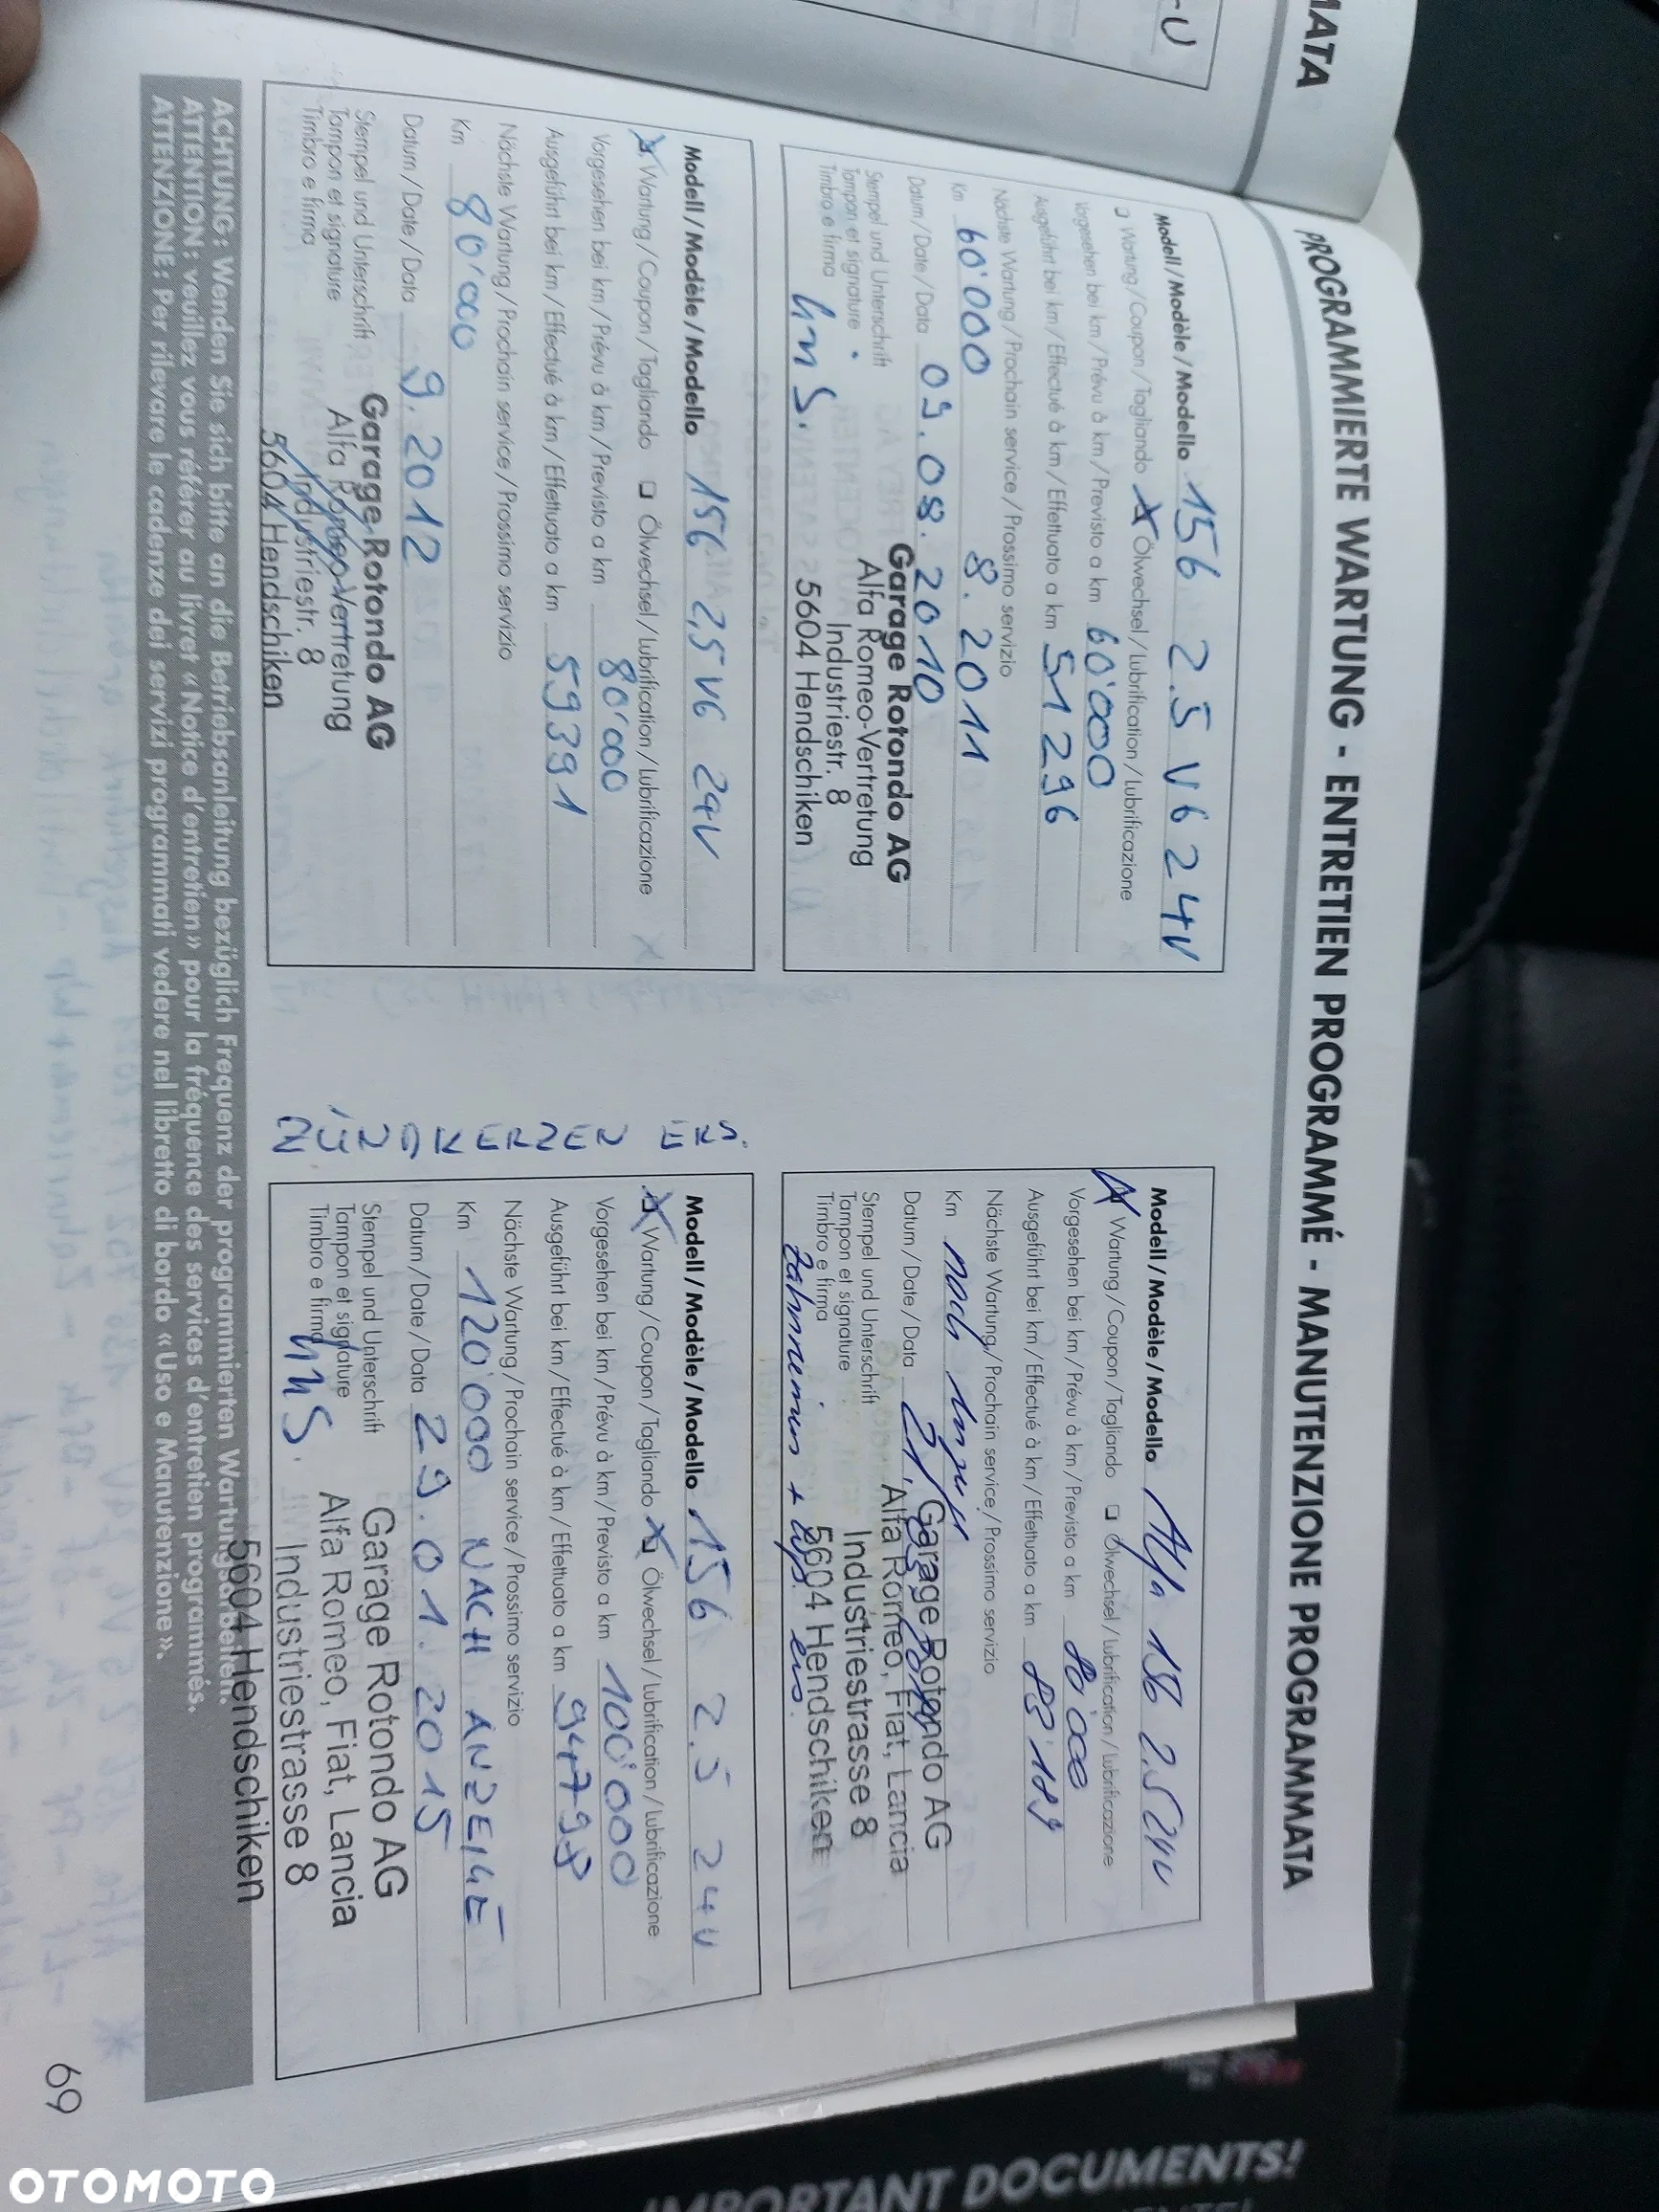 MATA
-U
PROGRAMMIERTE WARTUNG - ENTRETIEN PROGRAMMÉ - MANUTENZIONE PROGRAMMATA
Modell / Modèle / Modello 156 2.5 V6 24V
❑ Wartung / Coupon / Tagliando X Ölwechsel / Lubrification / Lubrificazione
Vorgesehen bei km / Prévu à km / Previsto a km 60'000
Ausgeführt bei km / Effectué à km / Effettuato a km 51296
Nächste Wartung / Prochain service / Prossimo servizio
Km 60'000 8.2011
Datum / Date / Data 03.08.2010
Stempel und Unterschrift
Tampon et signature
Timbro e firma
Garage Rotondo AG
Alfa Romeo-Vertretung
Industriestr. 8
5604 Hendschiken
Modell / Modèle / Modello 156 2,5 V6 24V
X Wartung / Coupon / Tagliando ❑ Ölwechsel / Lubrification / Lubrificazione
Vorgesehen bei km / Prévu à km / Previsto a km 80'000
Ausgeführt bei km / Effectué à km / Effettuato a km 59391
Nächste Wartung / Prochain service / Prossimo servizio
Km 80'000
Datum / Date / Data 9.2012
Stempel und Unterschrift
Tampon et signature
Timbro e firma
Garage Rotondo AG
Alfa Romeo-Vertretung
Industriestr. 8
5604 Hendschiken
Modell / Modèle / Modello Alfa 156 2.5 24V
X Wartung / Coupon / Tagliando ❑ Ölwechsel / Lubrification / Lubrificazione
Vorgesehen bei km / Prévu à km / Previsto a km 80'000
Ausgeführt bei km / Effectué à km / Effettuato a km
Nächste Wartung / Prochain service / Prossimo servizio
Km nach
Datum / Date / Data
Stempel und Unterschrift
Tampon et signature
Timbro e firma
Garage Rotondo AG
Alfa Romeo, Fiat, Lancia
Industriestrasse 8
5604 Hendschiken
Zahnriemen + ers.
ZÜNDKERZEN ERS.
Modell / Modèle / Modello 156 2.5 24V
X Wartung / Coupon / Tagliando X Ölwechsel / Lubrification / Lubrificazione
Vorgesehen bei km / Prévu à km / Previsto a km 100'000
Ausgeführt bei km / Effectué à km / Effettuato a km 94798
Nächste Wartung / Prochain service / Prossimo servizio
Km 120'000 NACH ANZEIGE
Datum / Date / Data 29.01.2015
Stempel und Unterschrift
Tampon et signature
Timbro e firma
Garage Rotondo AG
Alfa Romeo, Fiat, Lancia
Industriestrasse 8
5604 Hendschiken
ACHTUNG: Wenden Sie sich bitte an die Betriebsanleitung bezüglich Frequenz der programmierten Wartungsarbeiten.
ATTENTION: veuillez vous référer au livret «Notice d'entretien» pour la fréquence des services d'entretien programmés.
ATTENZIONE: Per rilevare le cadenze dei servizi programmati vedere nel libretto di bordo «Uso e Manutenzione».
69
IMPORTANT DOCUMENTS!
OTOMOTO